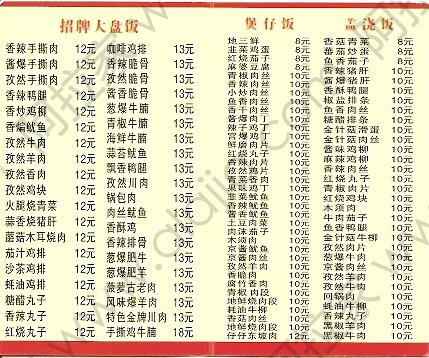 招牌大盘饭
香辣手撕肉 12元 咖啡鸡排 13元
酱爆手撕肉 12元 香辣脆骨 13元
孜然手撕肉 12元 孜然脆骨 13元
香辣鸭腿 12元 酱香脆骨 13元
香炒鸡柳 12元 葱爆牛腩 13元
香煸鱿鱼 12元 青椒牛腩 13元
孜然牛肉 12元 海鲜牛腩 13元
孜然羊肉 12元 蒜苔鱿鱼 13元
孜然香肉 12元 飘香鸭腿 13元
孜然鸡块 12元 孜然川肉 13元
火腿烧青菜 12元 锅包肉 13元
蒜香烧猪肝 12元 肉丝鱿鱼 13元
蘑菇木耳烧肉 12元 香酥鸡 13元
茄汁鸡排 12元 香辣排骨 13元
沙茶鸡排 12元 葱爆肥牛 13元
蚝油鸡排 12元 葱爆肥羊 13元
糖醋丸子 12元 菠萝古老肉 13元
香辣丸子 12元 风味爆羊肉 13元
红烧丸子 12元 特色金牌川肉 13元
手撕鸡牛腩 18元
煲仔饭
地三鲜 8元
韭菜鸡蛋 8元
红烧茄子 8元
麻婆豆腐 8元
青椒肉丝 10元
香辣肉丝 10元
小炒肉丝 10元
鱼香肉丝 10元
香干肉丝 10元
酱爆鸡丁 10元
辣子鸡丁 10元
宫爆鸡丁 10元
鲜蘑肉片 10元
红烧丸子 10元
香辣肉片 10元
孜然鸡片 10元
青菜香肉 10元
果味鸡丁 10元
韭菜鱿鱼 10元
香辣鱿鱼 10元
酱香鱿鱼 10元
土豆肉菜 10元
肉沫茄子 10元
木须肉 10元
京酱肉丝 10元
孜然羊肉 10元
香脆肉 10元
腐竹香肉 10元
青椒肉段 10元
地鲜烧肉段 10元
蚝油牛柳 10元
地鲜烧肉段 10元
仔仔东坡肉 12元
盖浇饭
香菇青菜 8元
蕃茄炒蛋 8元
鱼香茄子 8元
香辣猪肝 10元
酱爆猪肝 10元
香酥鸭腿 10元
椒盐排条 10元
糖醋排条 10元
金针菇滑蛋 10元
金针菇肉丝 10元
酱味鸡柳 10元
麻辣鸡柳 10元
香辣肉丝 10元
红烧丸子 10元
青椒肉片 10元
红烧鸡块 10元
木须肉 10元
牛肉茄子 10元
鱼香鸭腿 10元
金针菇牛柳 10元
孜然肉片 10元
葱爆牛肉 10元
京酱肉丝 10元
孜然羊肉 10元
回锅肉 10元
孜然牛肉 10元
蚝油牛柳 10元
香辣牛肉 10元
黑椒羊肉 10元
黑椒牛柳 10元